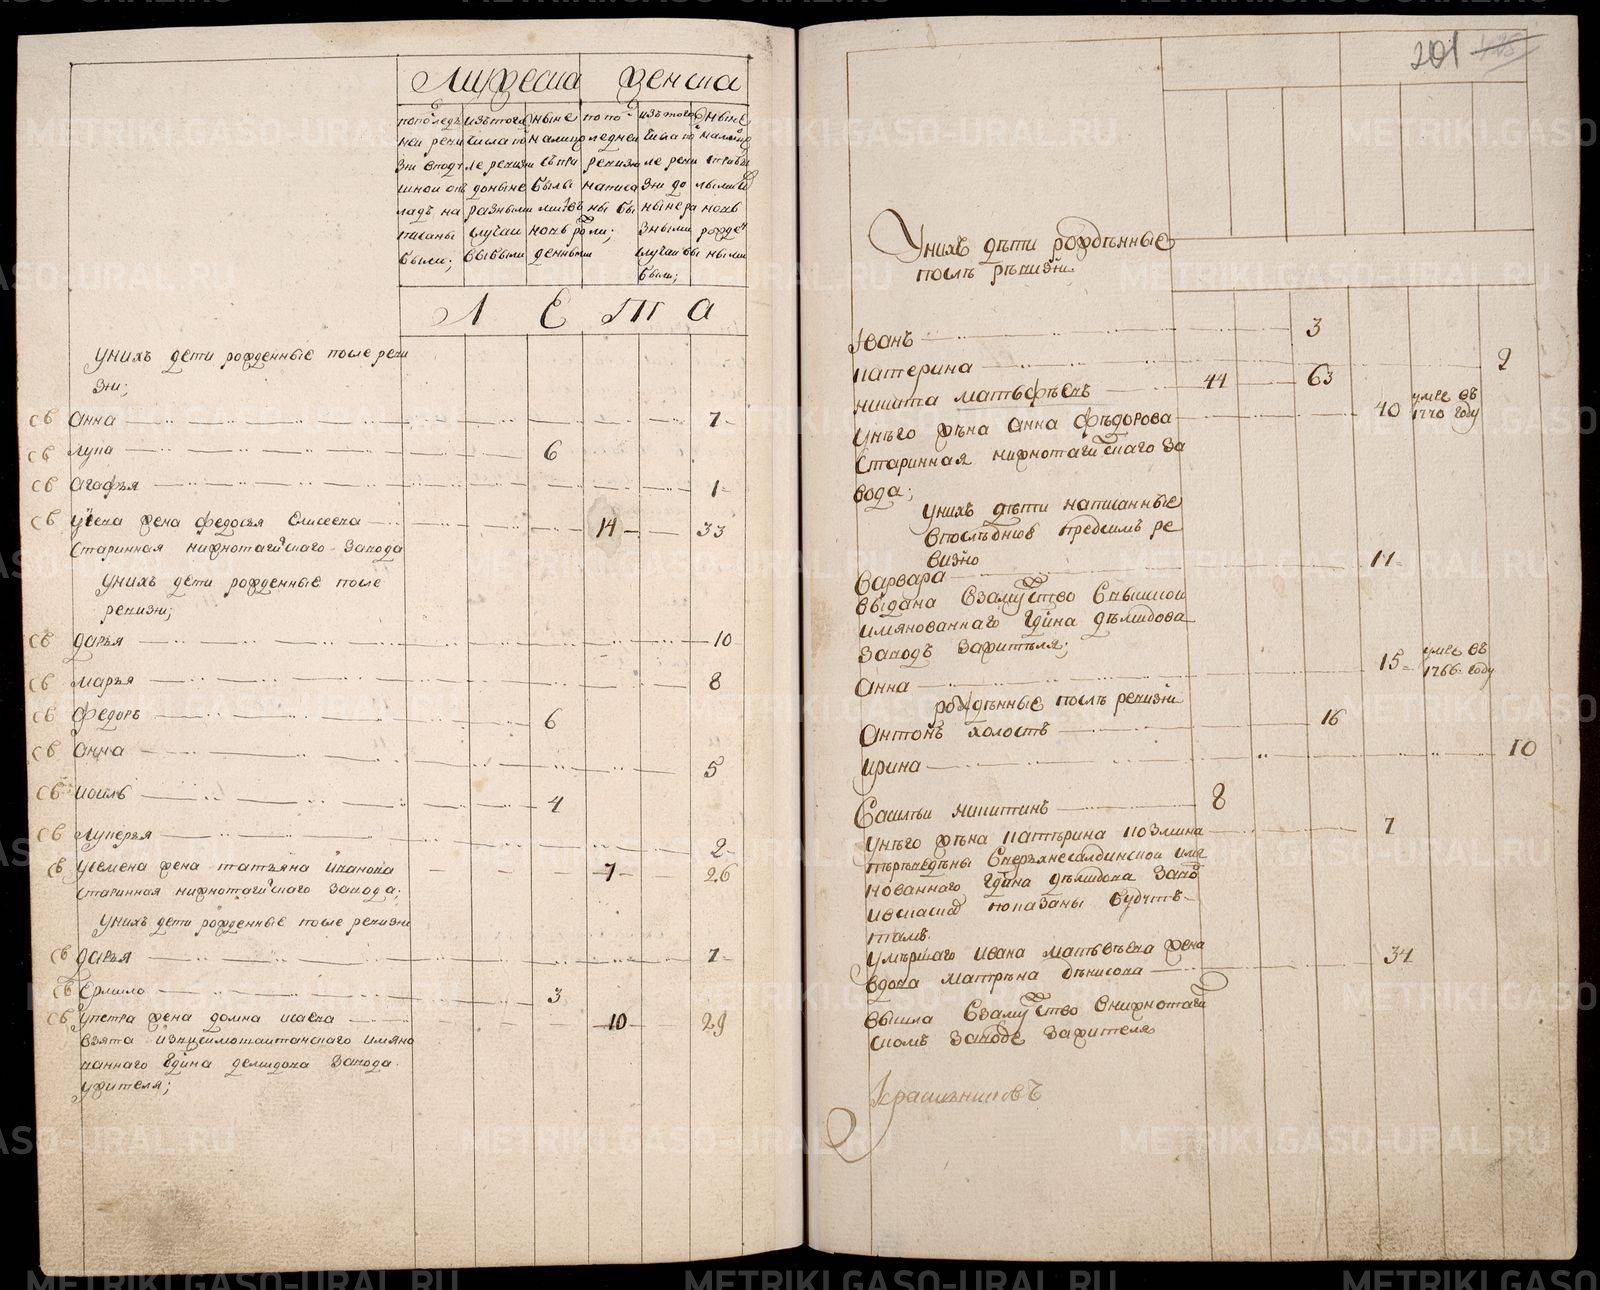 Мужеска женска
по последъ
ней реви
зии в подъ
шной ок
ладъ на
писаны
были;
изъ того
числа по
сле ревизи
до ныне
разными
случаи
выбыли
ныне
на лицо
съ при
былы
ми и въ
новь ро
жденными
по по
следней
ревизи
написа
ны бы
ли;
изъ того
числа по
сле реви
зии до
ныне ра
зными
случаи вы
были;
ныне
на лицо
с прибы
лыми и
новь
рожден
ными
Л Е Т А
У нихъ дети рожденные после реви
зии;
св Анна 7
св Лупа 6
св Агафья 1
св жена Федосья Елисеева 14 33
Старинная нижнотагилскаго завода
У нихъ дети рожденные после
ревизи;
св дарья 10
св марья 8
св Федоръ 6
св Анна 5
св 4
св Лукерья 2
св У Семена жена татьяна Иванова 7 26
Старинная нижнотагилскаго завода;
У нихъ дети рожденные после ревизи
св дарья 7
св Ермило 3
св У петра жена домна Исаева 10 29
взята имяно
ваннаго Гдина демидова завода
у жителя;
201
У нихъ дети рожденные
после ревизи
Иванъ 3
катерина 2
никита матвеевъ 44 63
У него жена Анна Федорова 40 умре въ
1770 году
Старинная нижнотагилскаго за
вода;
У нихъ дети написанные
в последнюю предсимъ ре
визию
Варвара 11
выдана в замужство в вышной
имянованнаго Гдина демидова
заводъ за жителя;
Анна 15 умре въ
1766 году
рожденные после ревизи
Антонъ холостъ 16
ирина 10
Савелей никитинъ 8
У него жена катерина козмина 7
имя
нованнаго Гдина демидова заво
показаны будутъ
тамъ
умершаго Ивана матвеева жена
вдова матрена денисова 34
вышла в замужство в нижнотаги
скомъ заводе за жителя